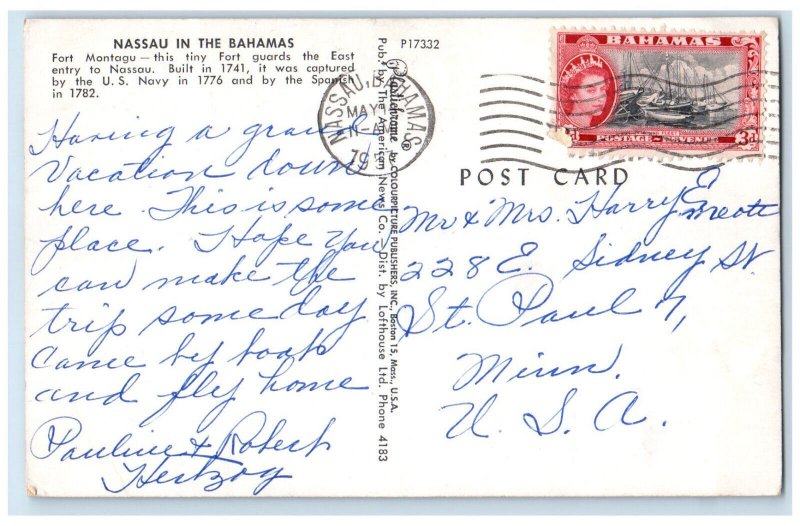 NASSAU IN THE BAHAMAS
Fort Montagu — this tiny Fort guards the East
entry to Nassau. Built in 1741, it was captured
by the U.S. Navy in 1776 and by the Spanish
in 1782.
Having a grand
Vacation down
here. This is some
place. Hope you
can make the
trip some day
Came by boat
and fly home
Pauline & Robert
Hertzog
Pub. by The American News Co. — Dist. by Lofthouse Ltd. Phone 4183
Plastichrome ® by COLOURPICTURE PUBLISHERS, INC., Boston 15, Mass., U.S.A.
P17332
NASSAU, BAHAMAS
MAY
BAHAMAS
POSTAGE
3d
POST CARD
Mr & Mrs. Harry
228 E. Sidney St.
St. Paul 7,
Minn.
U. S. A.